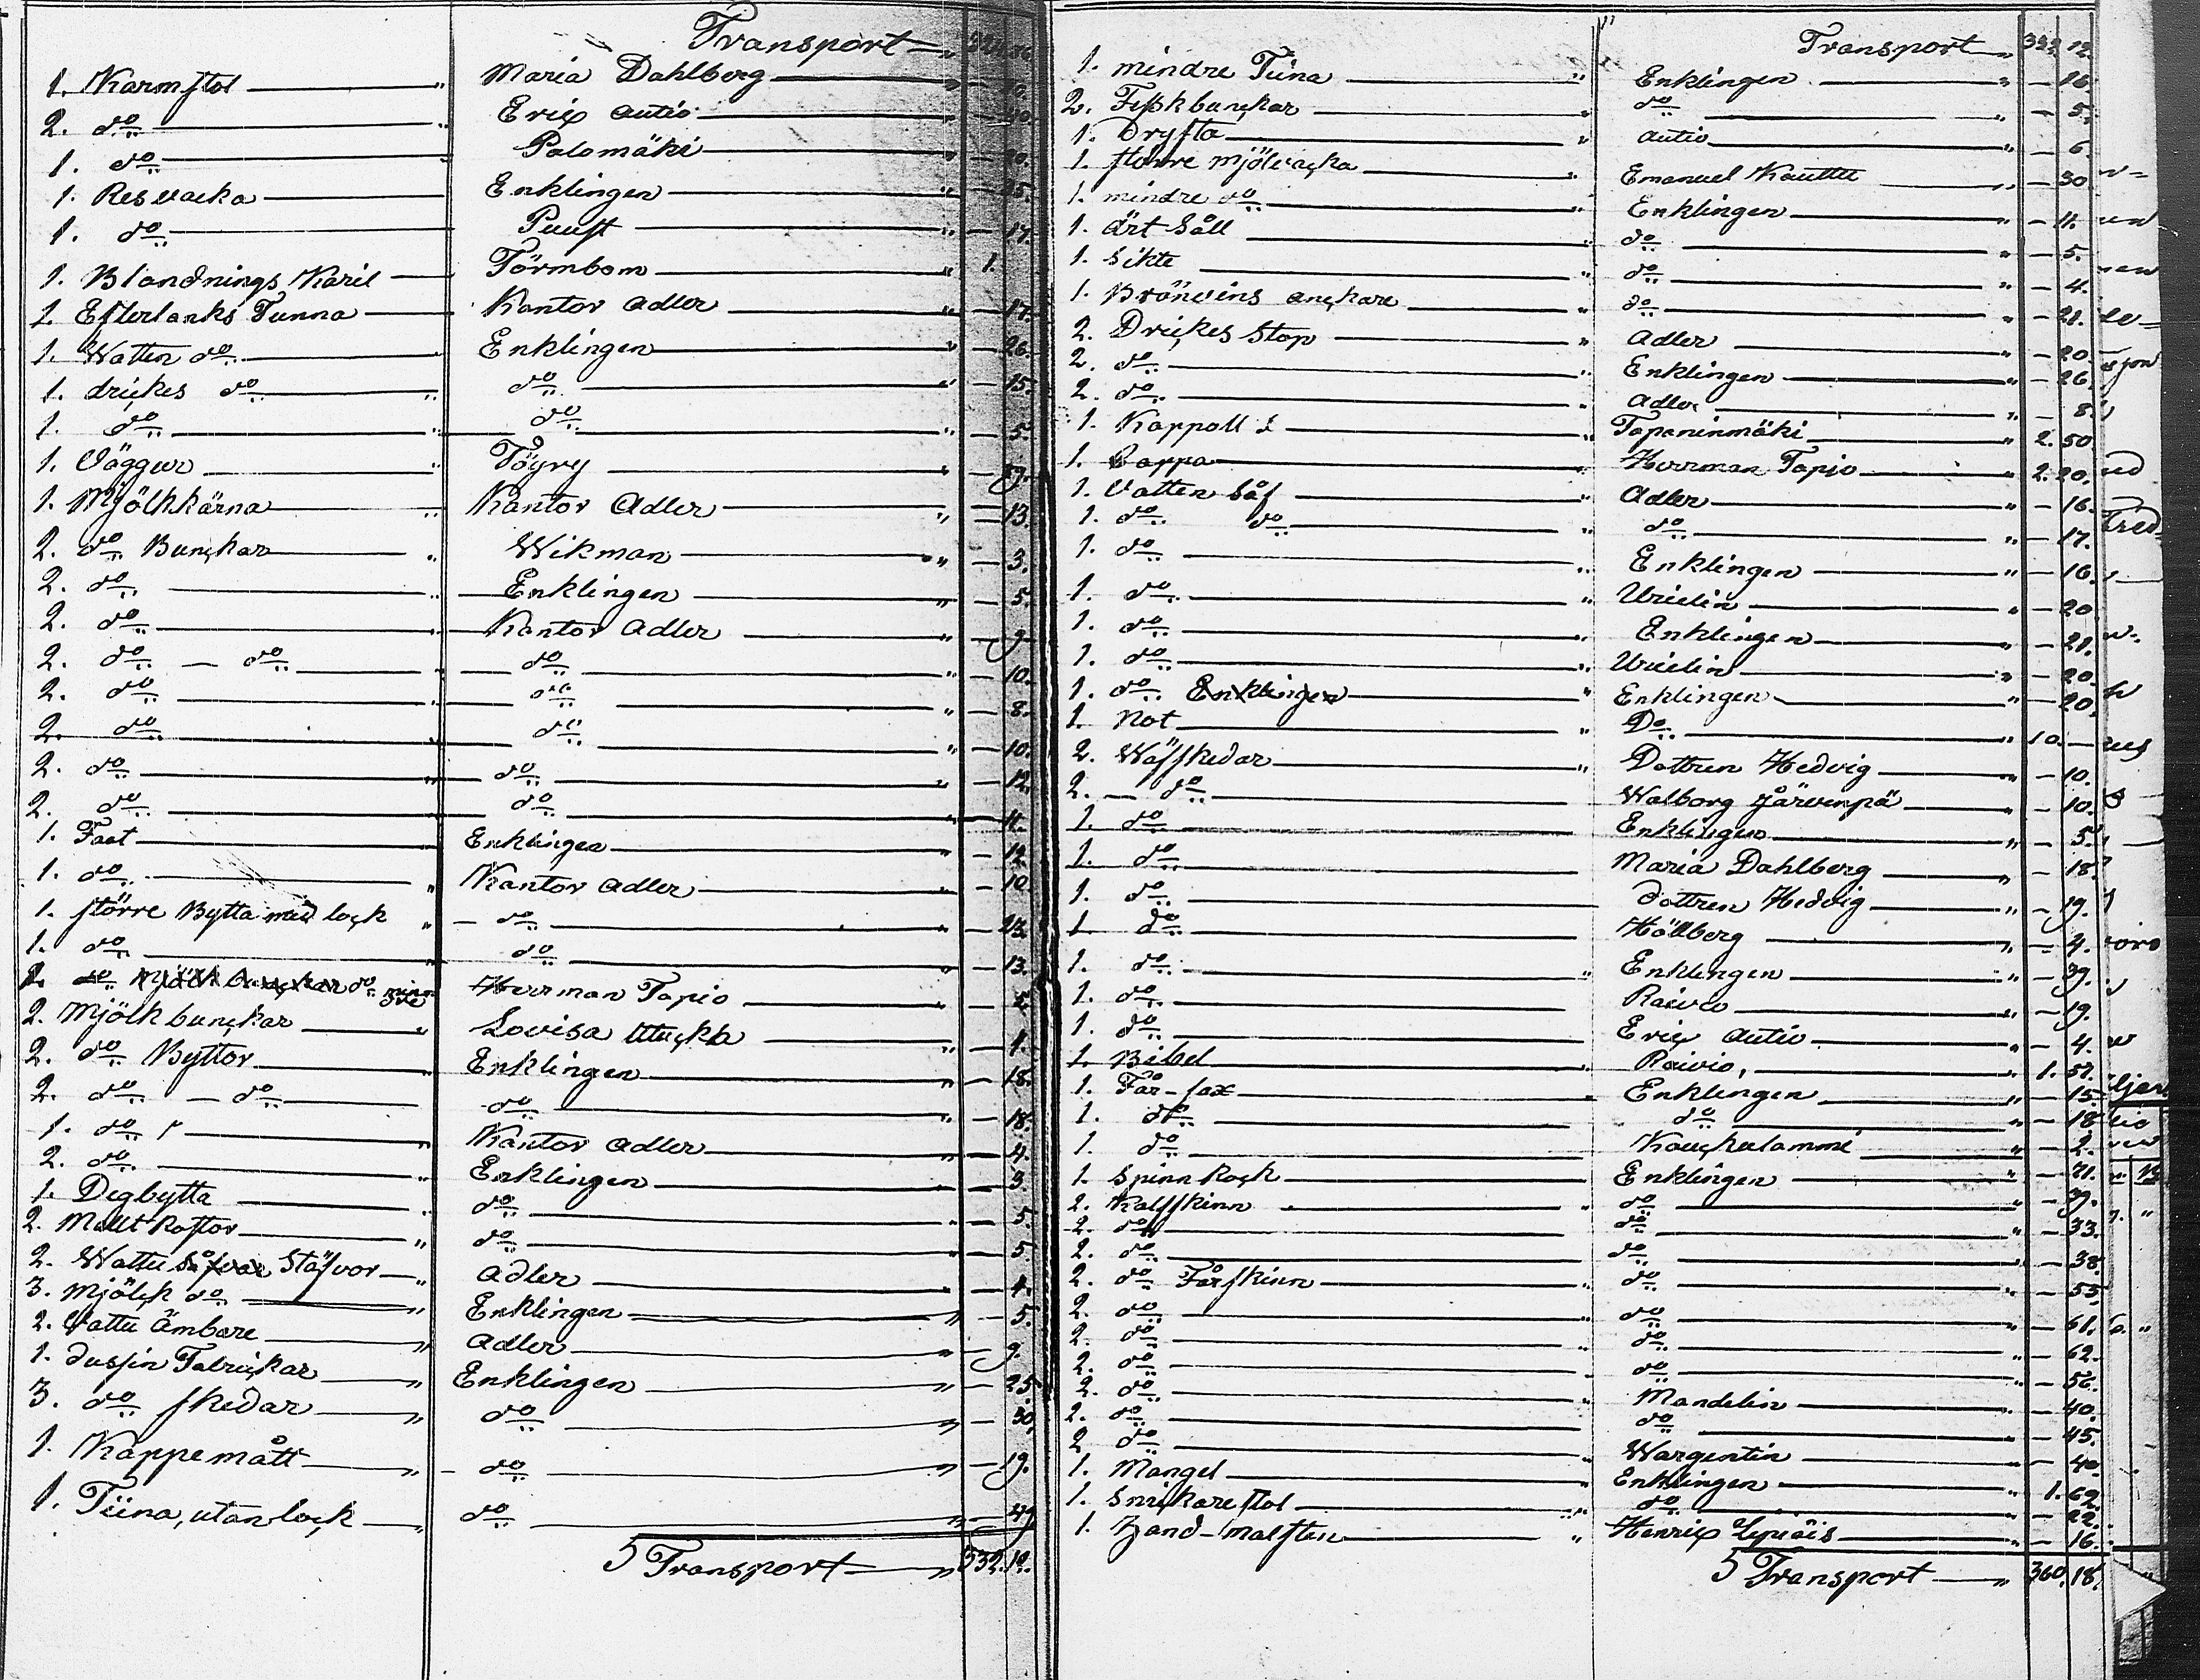 Transport
1. Karmstol Maria Dahlberg
2. do Eric Autio
1. do Palomäki 20.
1. Resvacka Enklingen 25.
1. do Puust 17.
1. Blandnings Karil Törmbom 1.
1. Efterlanks Tunna Kantor Adler 17.
1. Watten do Enklingen 26.
1. drickes do do 15.
1. do do 5.
1. Vaggur Töyry 9.
1. Mjölkkärna Kantor Adler 13.
2. do Bunckar Wikman 3.
2. do Enklingen 5.
2. do Kantor Adler 9
2. do do do 10.
2. do do 8.
2. do do 10.
2. do do 12.
2. do do 11.
1. Faat Enklingen 12
1. do Kantor Adler 10
1. större Bytta med lock do 23.
1. do do 13.
1. do mindre Herrman Tapio
2. Mjölkbunckar Lovisa 1.
2. do Byttor Enklingen 18.
2. do do do 18.
1. do Kantor Adler 4.
2. do Enklingen 3.
1. Degbytta do 5.
2. Malt Rostor do 5.
2. Wattu Stäfvor Adler 4.
3. Mjölck do Enklingen 5.
2. Vattu Ämbare Adler 9.
1. dussin Talrickar Enklingen 25
3. do skedar do 30
1. Kappe mått do 19.
1. Tiina, utan lock do 49
5 Transport 332. 12.
Transport 332 12.
1. mindre Tiina Enklingen 16.
2. Fiskbunckar do 5.
1. Dryfta Autio 6.
1. större Mjölvacka Emanuel Kauttu 30
1. mindre do Enklingen 11.
1. Ärt Såll do 5.
1. Sikte do 4.
1. Brönvins anckare do 21.
2. Drickes Stop Adler 20.
2. do Enklingen 26.
2. do Adler 8.
1. Kappoll Tapaninmäki 2. 50
1. Cappa Herrman Tapio 2. 20.
1. Vatten Såf Adler 16.
1. do do do 17.
1. do Enklingen 16.
1. do Uvielin 20
1. do Enklingen 21.
1. do Uvielin 20.
1. do Enklingen 20.
1. Not Do 10.
2. Wäfskedar Dottren Hedvig 10.
2. do Walborg Järvenpä 10.
1. do Enklingen 5.
1. do Maria Dahlberg 18.
1. do dottren Hedvig 19.
1. do Hällberg 4.
1. do Enklingen 39.
1. do Raivio 19.
1. do Eric Autio 4.
1. Bibel Raivio, 1. 57.
1. Får-sax Enklingen 15.
1. do do 18
1. do Kauckulammi 2.
1. Spinn Rock Enklingen 71.
2. Kalfskinn do 39.
2. do do 33.
2. do do 38.
2. do Fårskinn do 55.
2. do do 61.
2. do do 62.
2. do do 56.
2. do Mandelin 40.
2. do do 45.
2 do Wargentin 40
1. Mangel Enklingen 1. 62.
1. Snickare stol do 22.
1. Hand-malsten Henric 16.
5 Transport 360. 18.